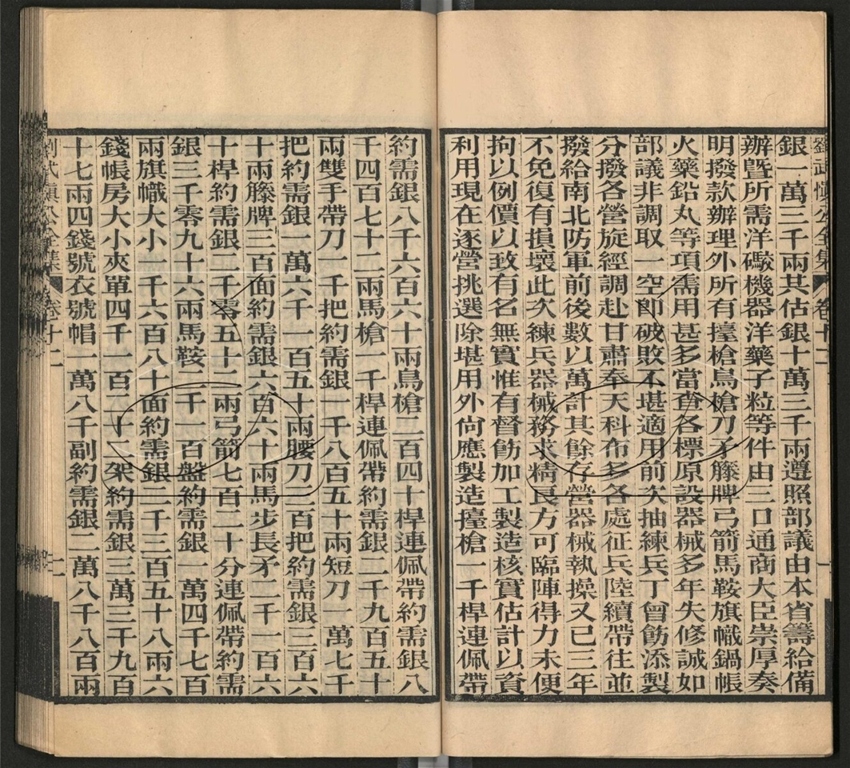 劉武慎公全集 卷十二
銀一萬三千兩其估銀十萬三千兩遵照部議由本省籌給備
辦暨所需洋礮機器洋藥子粒等件由三口通商大臣崇厚奏
明撥款辦理外所有擡槍鳥槍刀矛籐牌弓箭馬鞍旗幟鍋帳
火藥鉛丸等項需用甚多當查各標原設器械多年失修誠如
部議非調取一空卽破敗不堪適用前次抽練兵丁曾飭添製
分撥各營旋經調赴甘肅奉天科布多各處征兵陸續帶往並
撥給南北防軍前後數以萬計其餘存營器械執操又已三年
不免復有損壞此次練兵器械務求精良方可臨陣得力未便
拘以例價以致有名無實惟有督飭加工製造核實估計以資
利用現在逐營挑選除堪用外尙應製造擡槍一千桿連佩帶
約需銀八千六百六十兩鳥槍二百四十桿連佩帶約需銀八
千四百七十二兩馬槍一千桿連佩帶約需銀二千九百五十
兩雙手帶刀一千把約需銀一千八百五十兩短刀一萬七千
把約需銀一萬六千一百五十兩腰刀三百把約需銀三百六
十兩籐牌三百面約需銀六百六十兩馬步長矛二千一百六
十桿約需銀二千零五十二兩弓箭七百二十分連佩帶約需
銀三千零九十六兩馬鞍一千一百盤約需銀一萬四千七百
兩旗幟大小一千六百八十面約需銀二千三百五十八兩六
錢帳房大小夾單四千一百二十二架約需銀三萬三千九百
十七兩四錢號衣號帽一萬八千副約需銀二萬八千八百兩
劉武慎公全集 卷十二 二